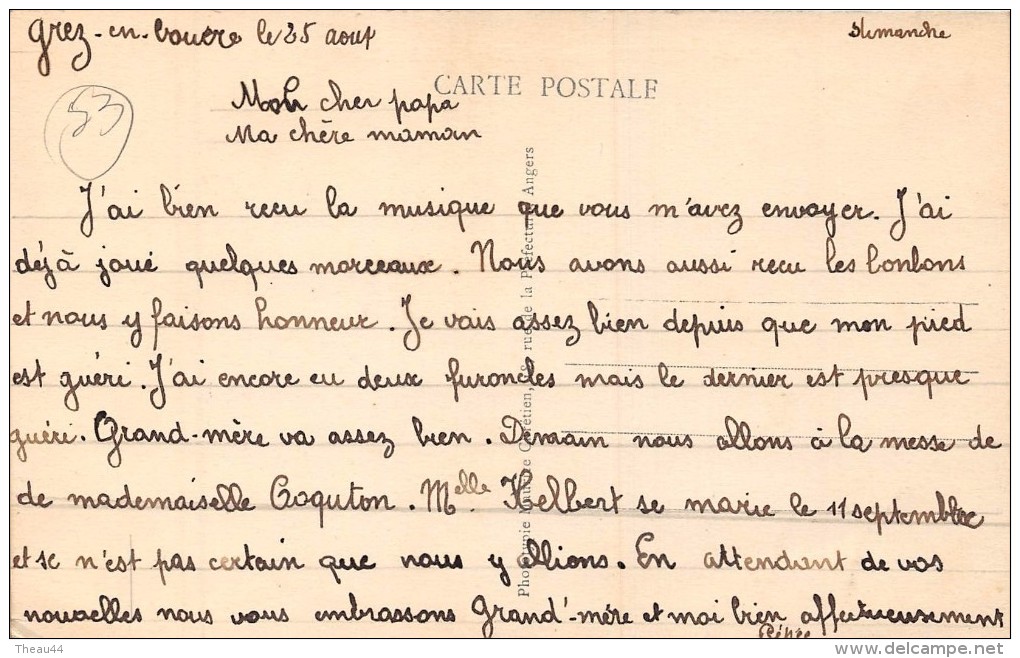 Grez-en-bouère le 25 aout dimanche
53
CARTE POSTALE
Mon cher papa
Ma chère maman
J'ai bien recu la musique que vous m'avez envoyer. J'ai
déjà joué quelques morceaux. Nous avons aussi recu les bonbons
et nous y faisons honneur. Je vais assez bien depuis que mon pied
est guéri. J'ai encore eu deux furoncles mais le dernier est presque
guéri. Grand-mère va assez bien. Demain nous allons à la messe de
de mademaiselle Coquton. Melle Helbert se marie le 11 septembre
et se n'est pas certain que nous y allions. En attendant de vos
nouvelles nous vous embrassons Grand'-mère et moi bien affectueusement
Phototypie Chrétien, rue de la Préfecture, Angers
Theau44
delcampe.net